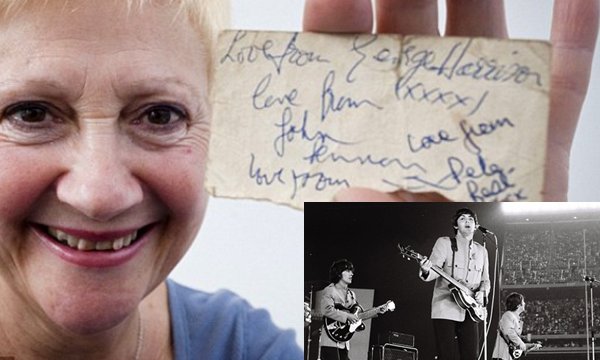 Love from George Harrison
love from (xxxx)
John
Lennon love from
love from Pete
Best
x